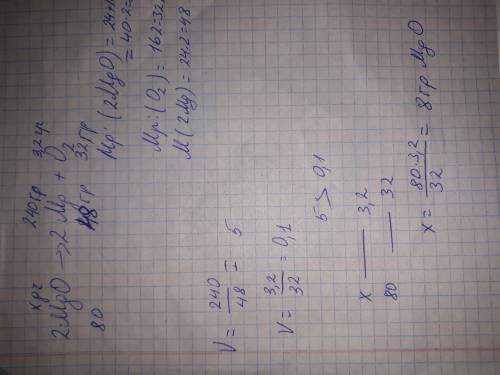 x гр 240 гр 3,2 гр
2MgO → 2 Mg + O₂
80 48 гр 32 гр
Mр: (2MgO) = 24+
= 40·2=
Mр: (O₂) = 16·2=32
M (2Mg) = 24·2=48
V = 240/48 = 5
V = 3,2/32 = 0,1
5 > 0,1
x — 3,2
80 — 32
x = 80·3,2/32 = 8 гр MgO